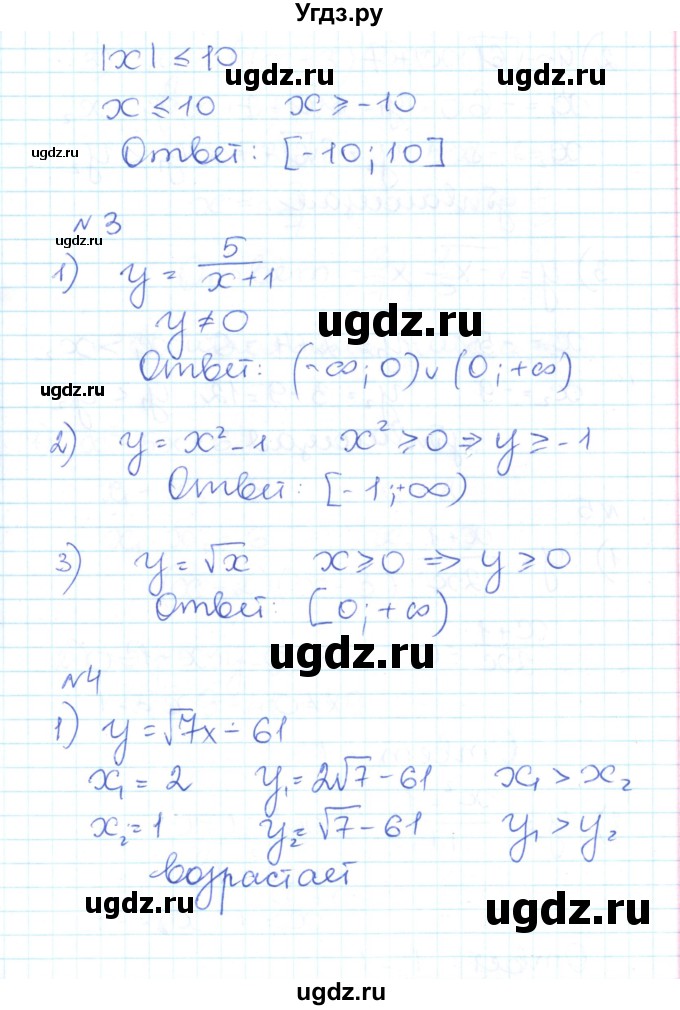 Угдз.ру
|x| ≤ 10
ugdz.ru
x ≤ 10 x ≥ -10
ugdz.ru
Ответ: [-10; 10]
ugdz.ru
№3
ugdz.ru
1) y = 5/(x+1)
y ≠ 0
ugdz.ru
Ответ: (-∞; 0) ∪ (0; +∞)
ugdz.ru
2) y = x² - 1 x² ≥ 0 ⇒ y ≥ -1
Ответ: [-1; +∞)
ugdz.ru
3) y = √x x ≥ 0 ⇒ y ≥ 0
Ответ: [0; +∞)
ugdz.ru
№4
1) y = √7x - 61
x₁ = 2 y₁ = 2√7 - 61 x₁ > x₂
x₂ = 1 y₂ = √7 - 61 y₁ > y₂
возрастает
ugdz.ru
ugdz.ru
ugdz.ru